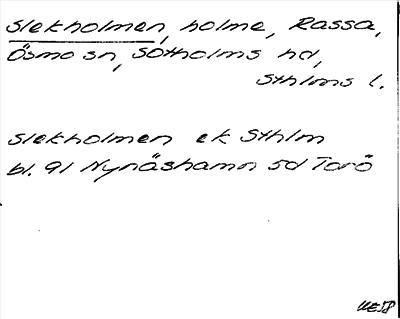 Slekholmen, holme, Rassa,
Ösmo sn, Sotholms hd,
Sthlms l.
Slekholmen ek Sthlm
bl. 91 Nynäshamn 5d Torö